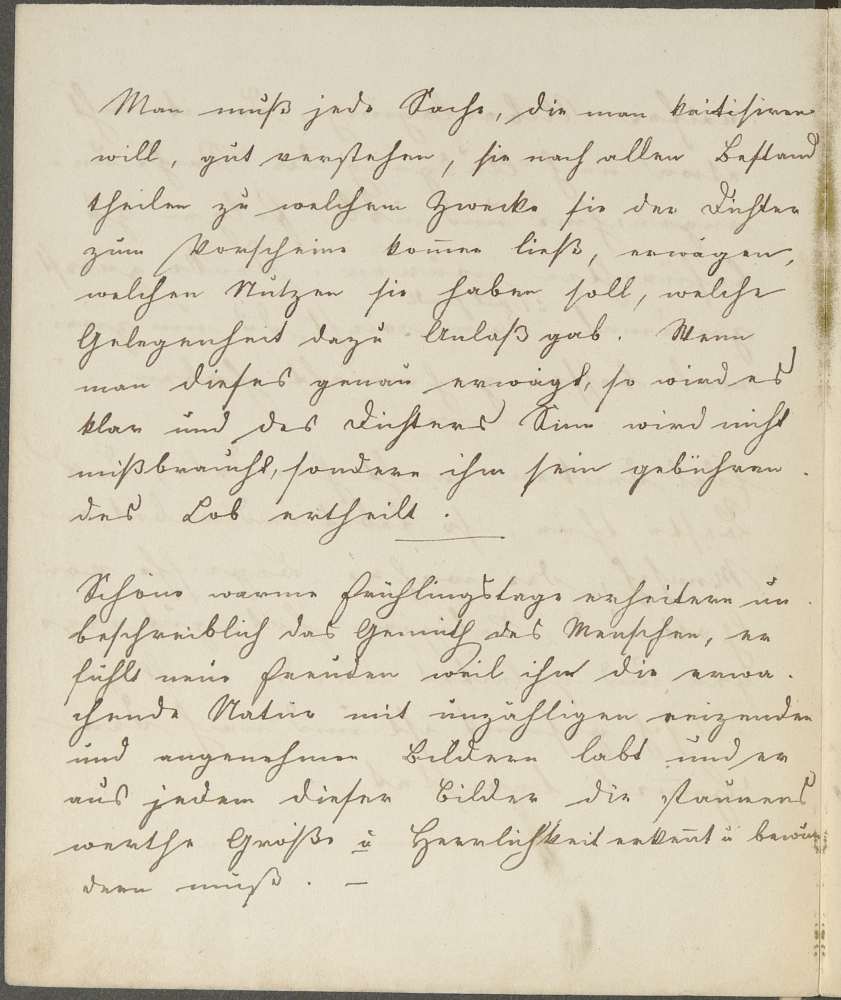 Man muß jede Sache, die man kritisiren
will, gut verstehen, sie nach allen Bestand
theilen zu welchem Zwecke sie der Dichter
zum Vorscheine kom̄en ließ, erwägen,
welchen Nutzen sie haben soll, welche
Gelegenheit dazu Anlaß gab. Wenn
man dieses genau erwägt, so wird es
klar und des Dichters Sinn wird nicht
mißbraucht, sondern ihm sein gebühren
des Lob ertheilt.
Schöne warme Frühlingstage erheitern un
beschreiblich das Gemüth des Menschen, er
fühlt neue Freuden weil ihm die erwa-
chende Natur mit unzähligen reizenden
und angenehmen Bildern labt und er
aus jedem dieser Bilder die staunens
werthe Größe u Herrlichkeit erken̄t u bewun
dern muß. —